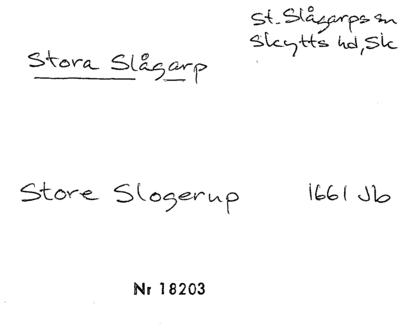 St. Slågarps sn
Skytts hd, Sk
Stora Slågarp
Store Slogerup 1661 Jb
Nr 18203